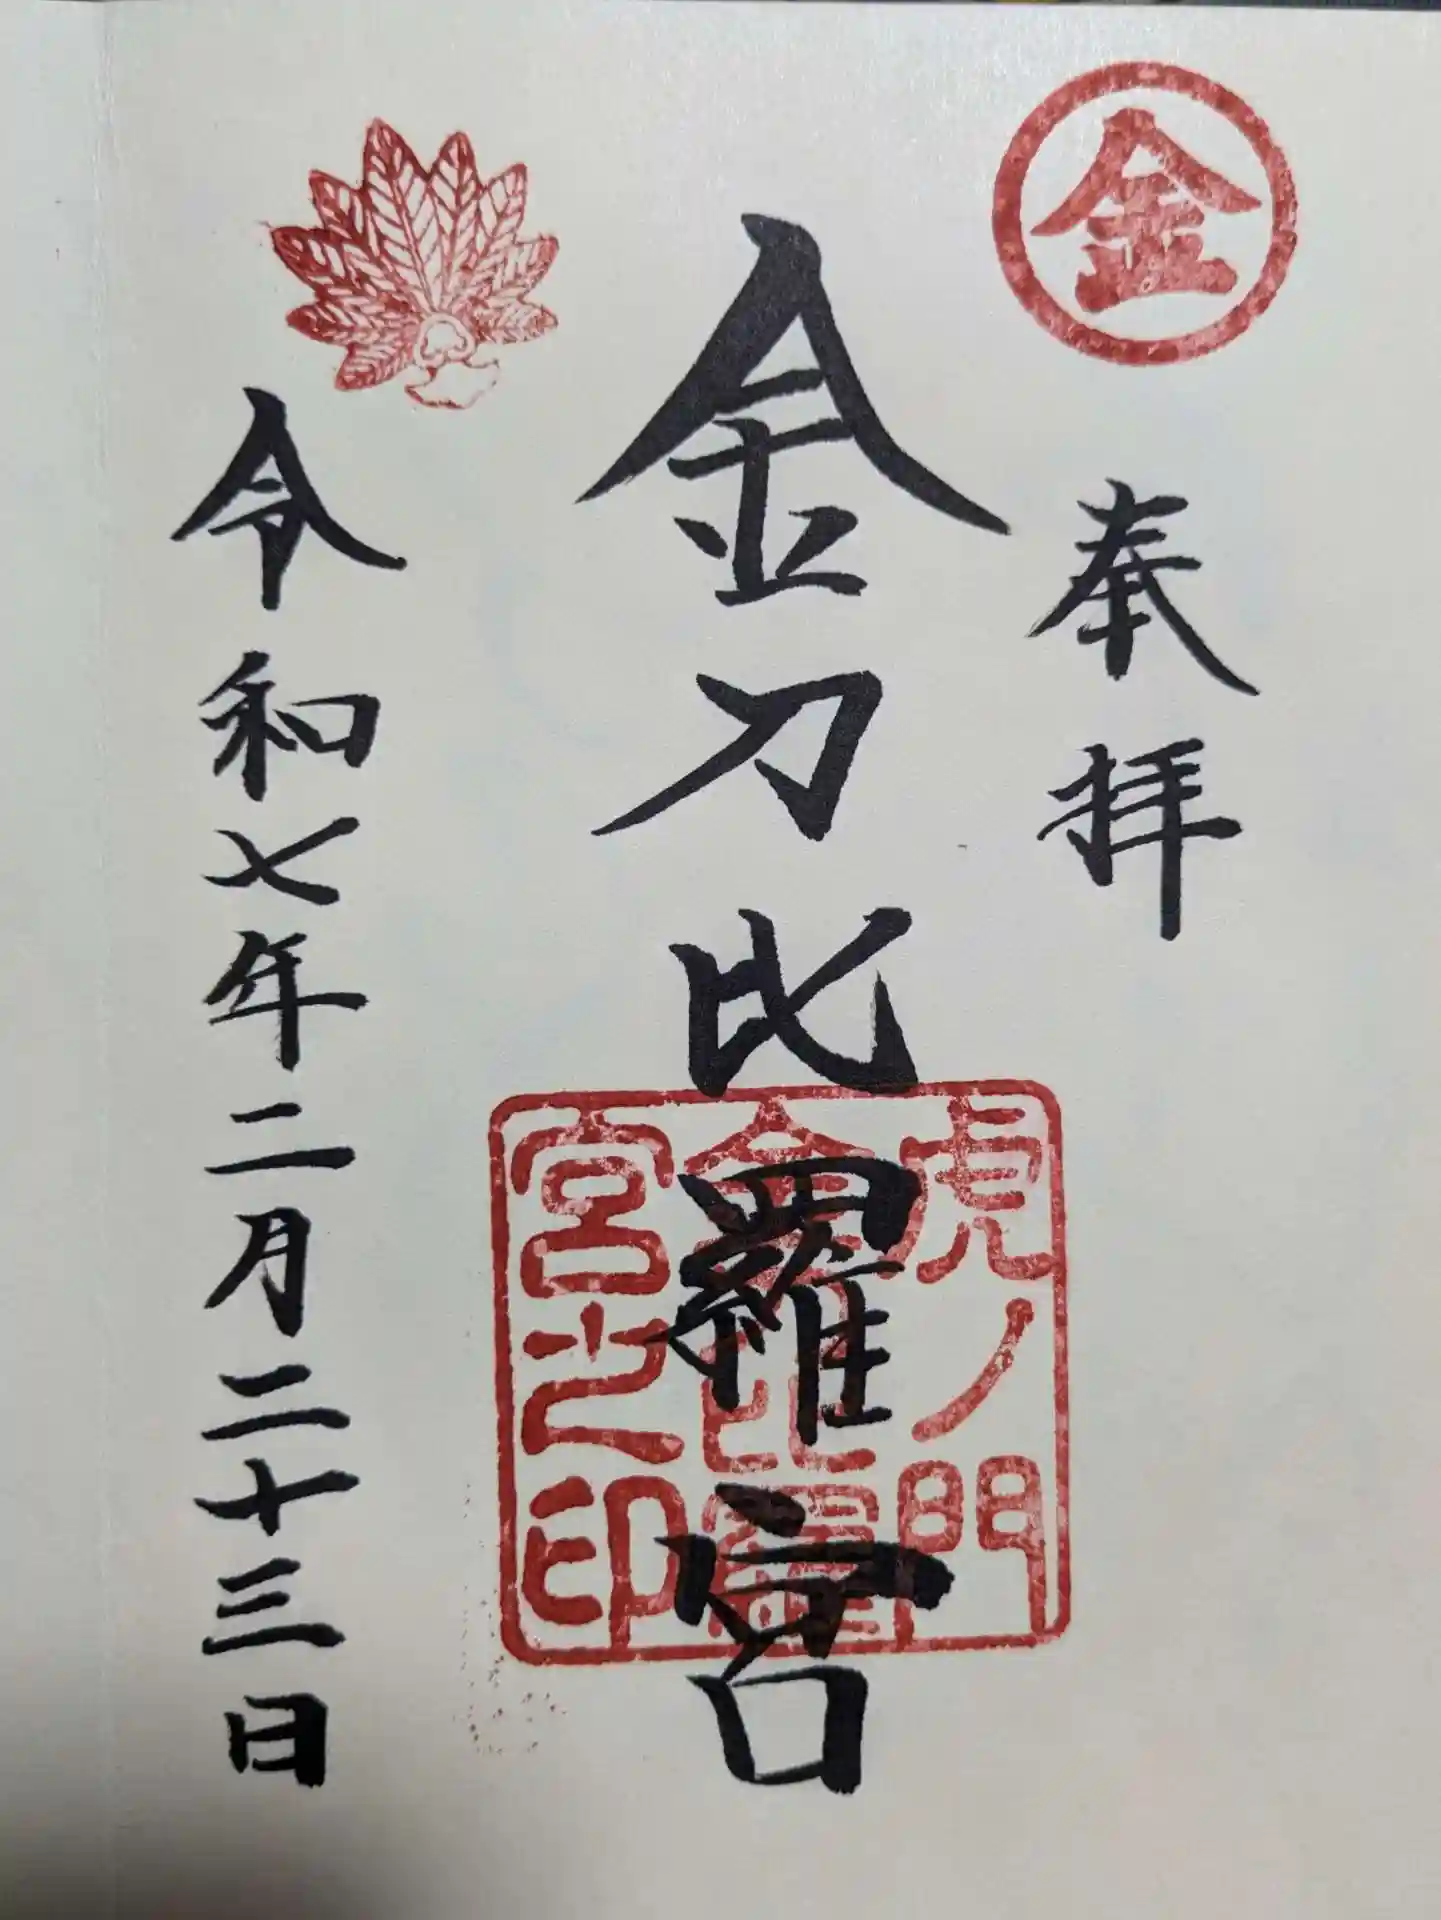 金
奉拝
金刀比羅宮
虎ノ門
金比羅
宮之印
令和七年二月二十三日